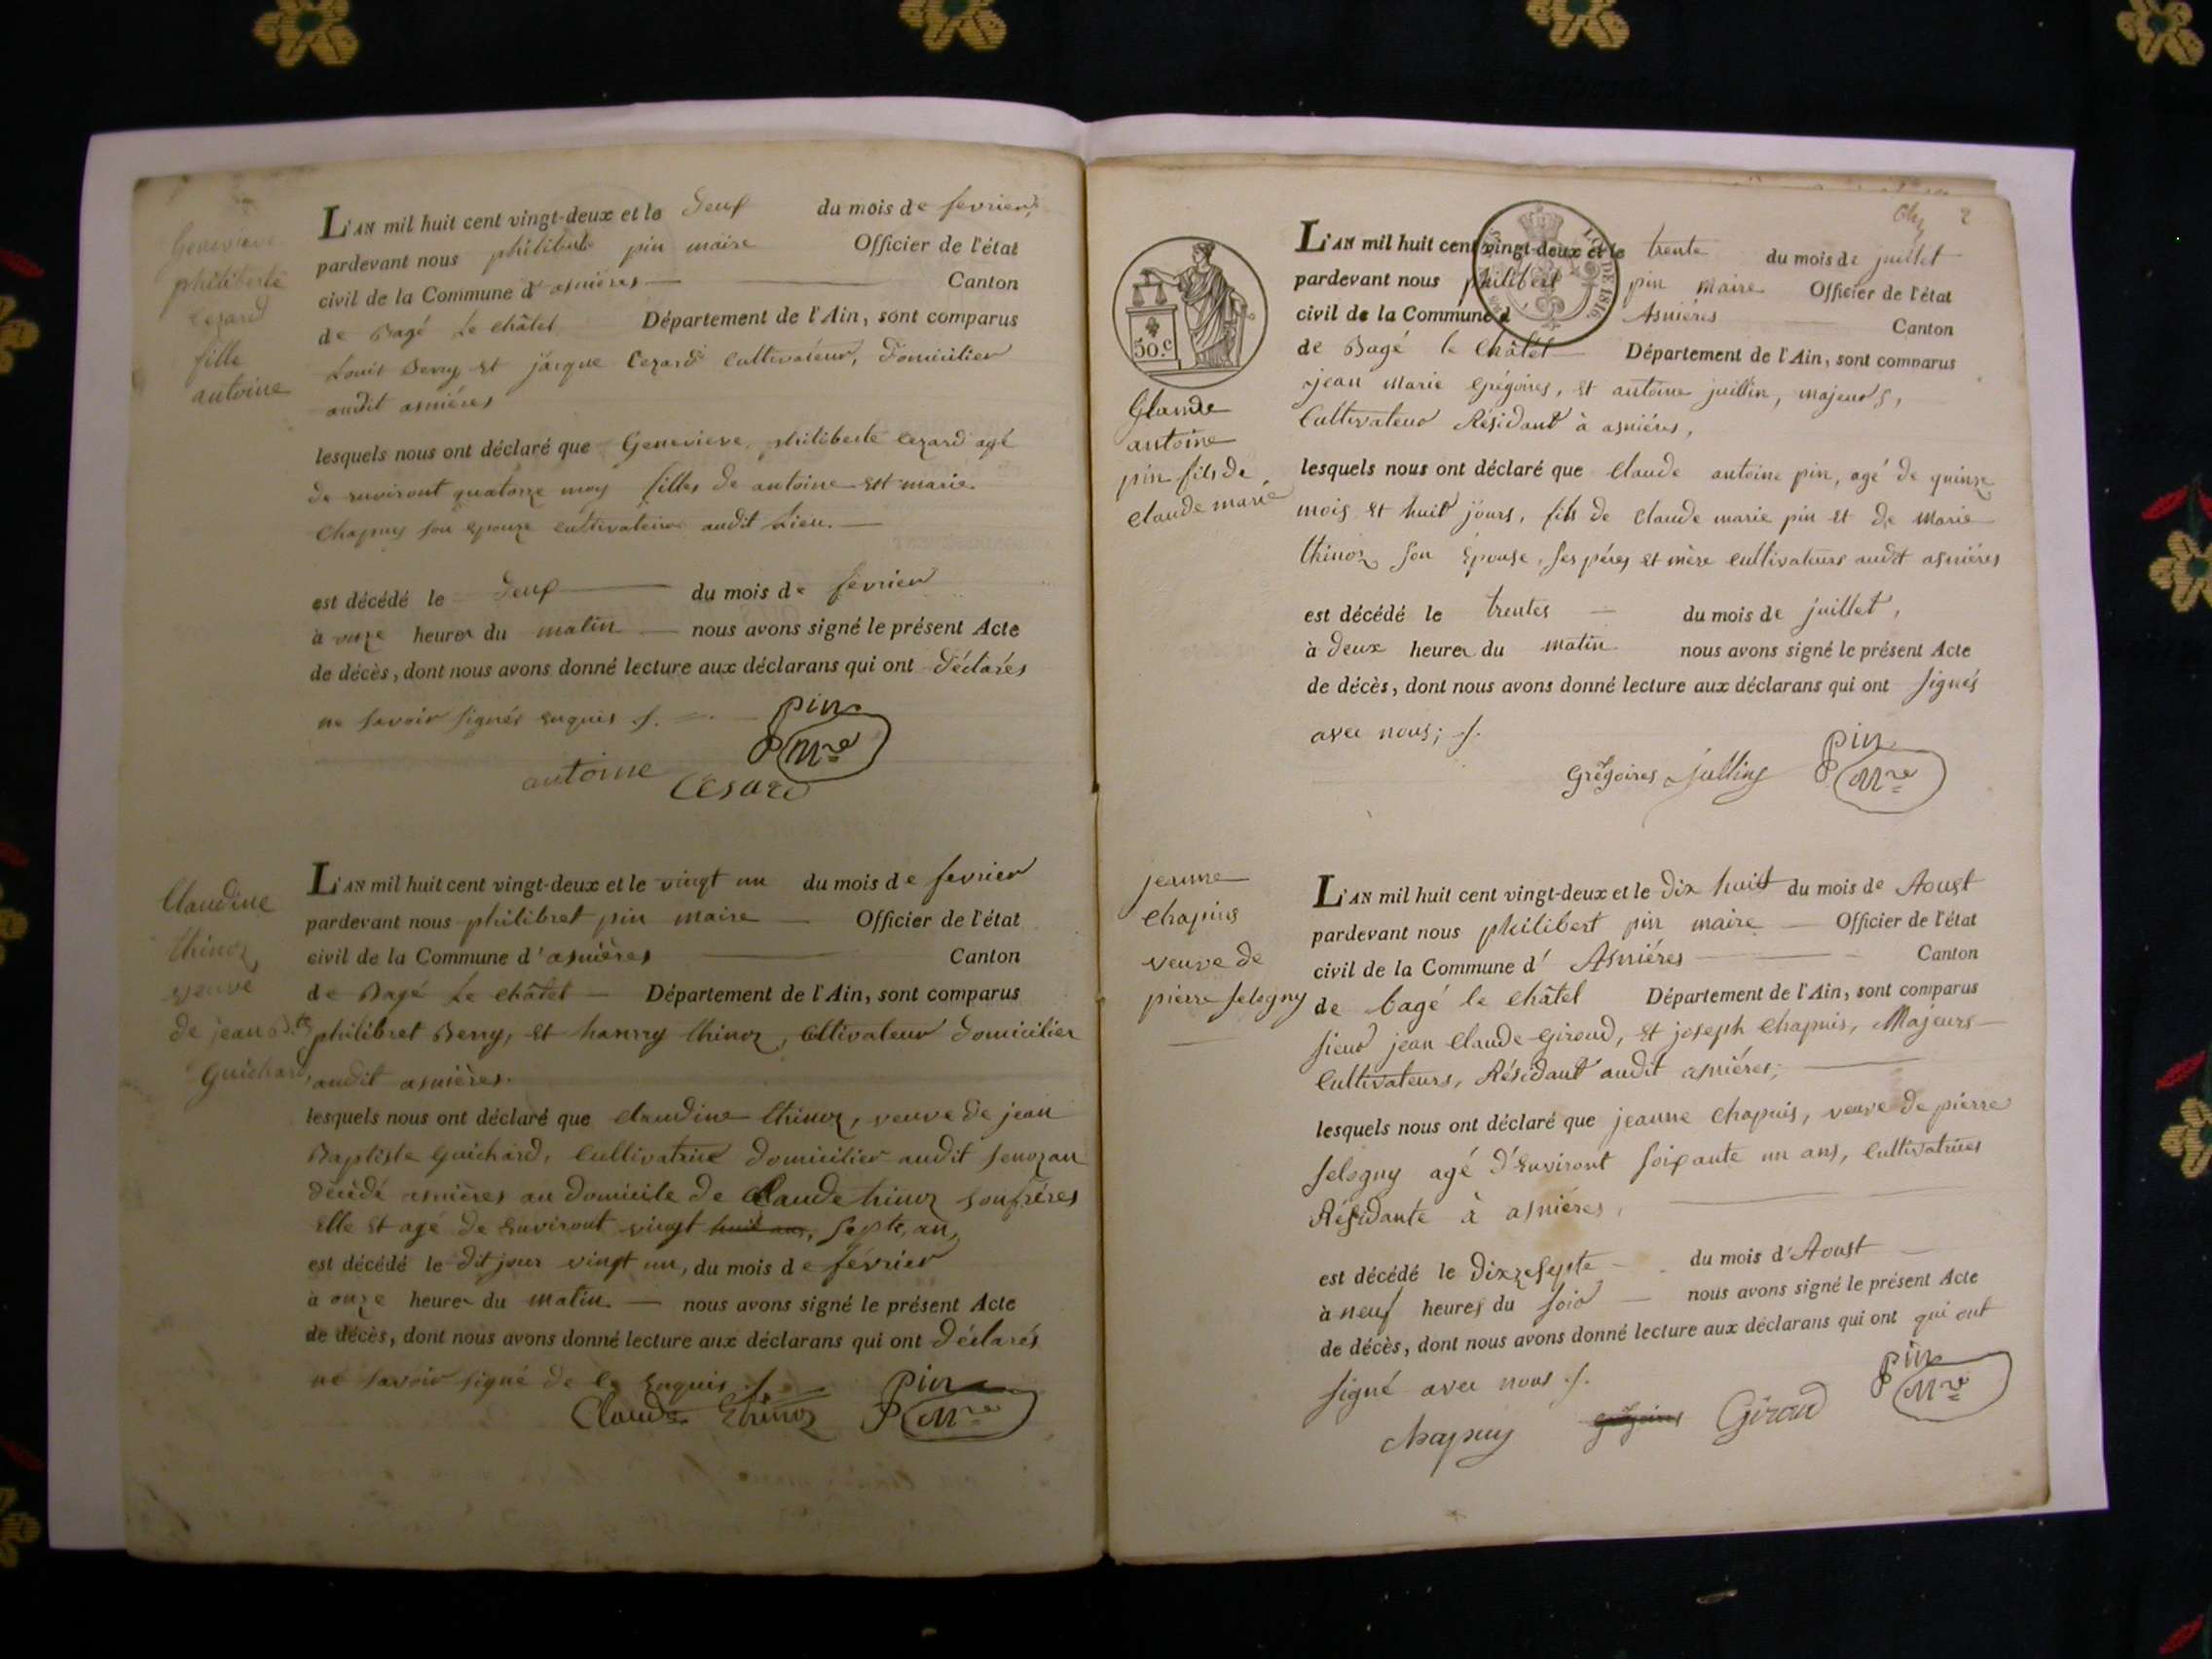 Genevieve
philiberte
Cezard
fille
antoine
L'AN mil huit cent vingt-deux et le deux du mois de fevrier,
pardevant nous philibert pin maire Officier de l'état
civil de la Commune d'asnières Canton
de Bagé Le châtel Département de l'Ain, sont comparus
Louis Berry et jacque Cezard Cultivateur, Domicilier
audit asnières
lesquels nous ont déclaré que Genevieve philiberte Cezard agé
de environt quatorze moy filles de antoine et marie
Chapuy son epouze cultivateur audit Lieu.
est décédé le deux du mois de fevrier
à onze heures du matin nous avons signé le présent Acte
de décès, dont nous avons donné lecture aux déclarans qui ont déclarés
ne savoir signés enquis ./.
pin
Mre
antoine Cesard
Claudine
thinoz
veuve
de jean Bte
Guichard
L'AN mil huit cent vingt-deux et le vingt un du mois de fevrier
pardevant nous philibret pin maire Officier de l'état
civil de la Commune d'asnières Canton
de Bagé Le châtel Département de l'Ain, sont comparus
philibret Berry, et hanrry thinoz, Cultivateur domicilier
audit asnières.
lesquels nous ont déclaré que claudine thinoz, veuve de jean
Baptiste Guichard, Cultivatrice domicilier audit senozan
décédé asnières au domicile de Claude thinoz sonfréres
elle et agé de environt vingt huit ans, septe, an,
est décédé le dit jour vingt un, du mois de février
à onze heures du matin. nous avons signé le présent Acte
de décès, dont nous avons donné lecture aux déclarans qui ont déclarés
ne savoir signé de ce enquis ./.
Claude thinoz
pin
Mre
2
50.c
LOI DE 1816
Glaude
antoine
pin fils de
claude marie
L'AN mil huit cent vingt-deux et le trente du mois de juillet
pardevant nous philibert pin maire Officier de l'état
civil de la Commune d Asnières Canton
de Bagé le châtel Département de l'Ain, sont comparus
jean marie Grégoires, et antoine juillin, majeurs,
Cultivateur Résidant à asnières,
lesquels nous ont déclaré que Claude antoine pin, agé de quinze
mois et huit jours, fils de Claude marie pin et de marie
thinoz son épouse, ses péres et mère cultivateurs audit asnières
est décédé le trentes du mois de juillet,
à deux heures du matin nous avons signé le présent Acte
de décès, dont nous avons donné lecture aux déclarans qui ont signés
avec nous; ./.
Grégoires Jullins
pin
Mre
jeanne
chapuis
veuve de
pierre selogny
L'AN mil huit cent vingt-deux et le dix huit du mois de Aoust
pardevant nous philibert pin maire Officier de l'état
civil de la Commune d' Asniéres Canton
de bagé le châtel Département de l'Ain, sont comparus
sieur jean Claude Giroud, et joseph Chapuis, Majeurs
Cultivateurs, Résidant audit asniéres;
lesquels nous ont déclaré que jeanne Chapuis, veuve de pierre
selogny agé d'environt soixante un ans, Cultivatrices
Résidante à asniéres,
est décédé le dixzesepte du mois d'Aoust
à neuf heures du soir nous avons signé le présent Acte
de décès, dont nous avons donné lecture aux déclarans qui ont qui ont
signé avec nous ./.
Chapuy Grégoires Giroud
pin
Mre